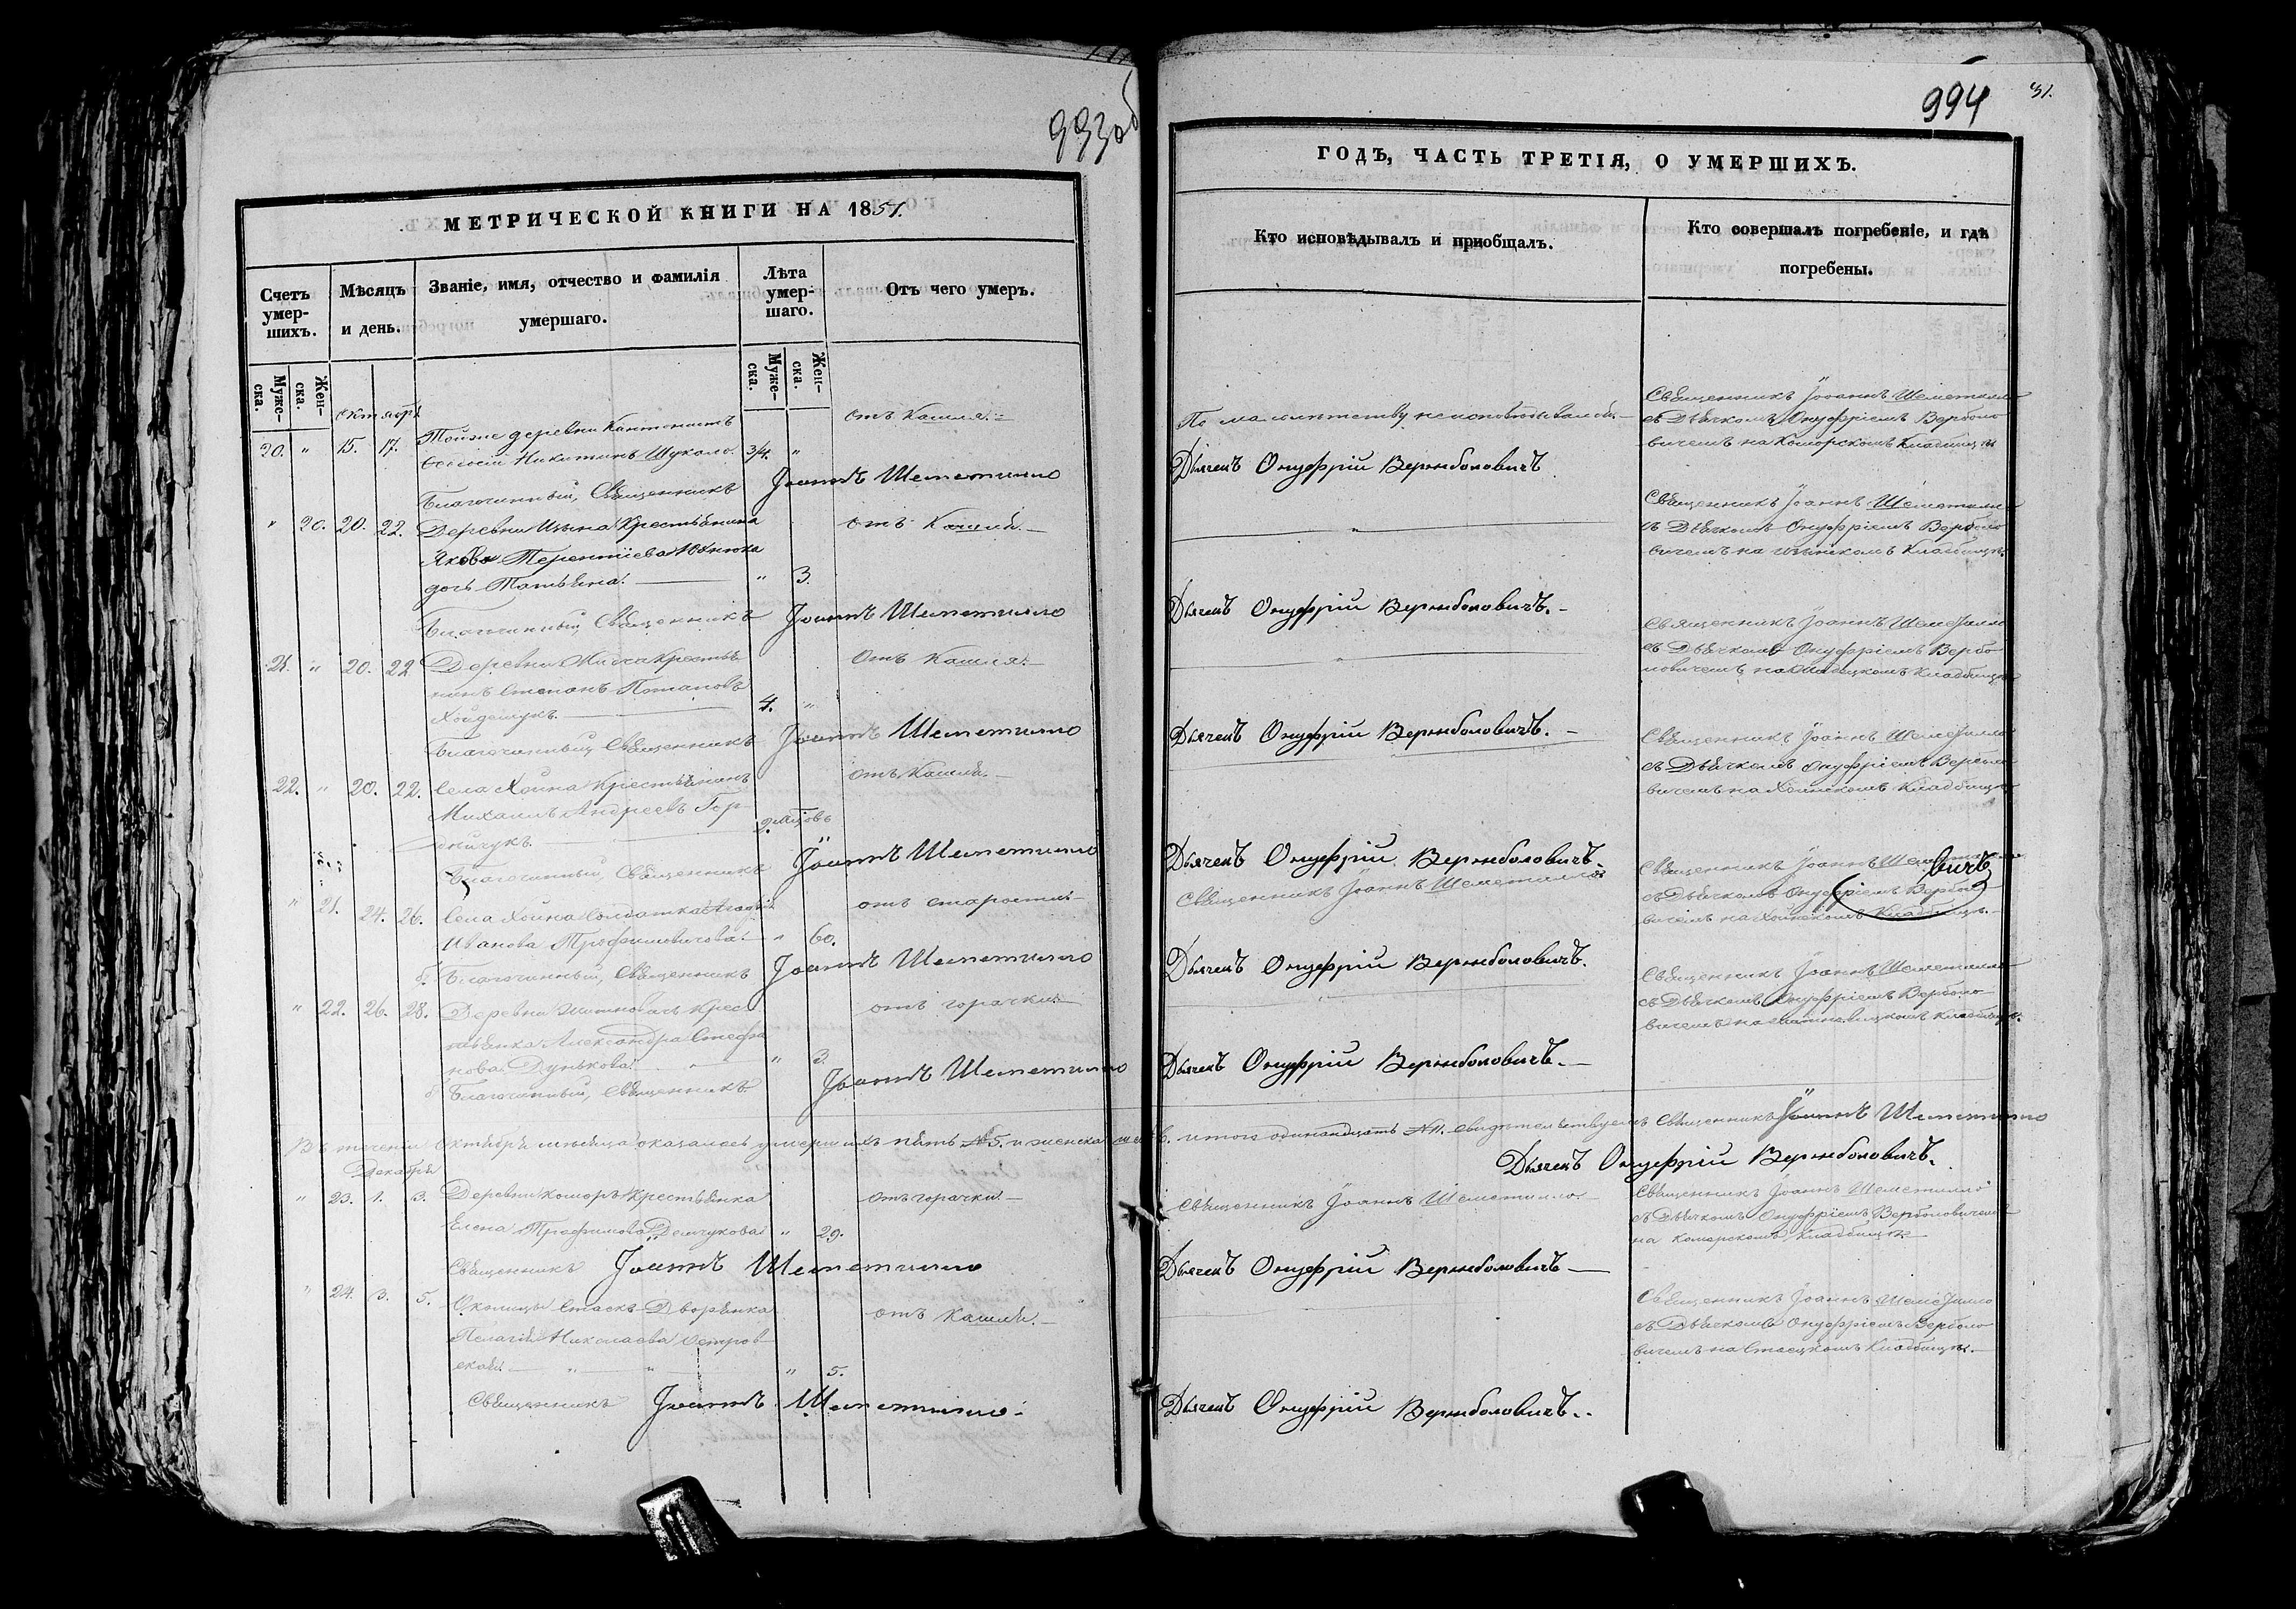 993об
МЕТРИЧЕСКОЙ КНИГИ НА 1857.
Счетъ умер-шихъ.
Мѣсяцъ и день.
Званіе, имя, отчество и фамилія умершаго.
Лѣта умер-шаго.
Отъ чего умеръ.
Муже-ска.
Жен-ска.
Муже-ска.
Жен-ска.
Октября
20. " 15. 17. Тойже деревни Кантонистъ
Никитинъ 3/4. " отъ Кашля.
Благочинный, Священникъ Іоаннъ Шеметилло
" 20. 20. 22. Деревни Крестьянина отъ Кашля.
Якова Терентіева
дочь Татьяна. " 3.
Благочинный, Священникъ Іоаннъ Шеметилло
21. " 20. 22 Деревни Крестья- отъ Кашля.
нинъ Степанъ Потаповъ
4. "
Благочинный Священникъ Іоаннъ Шеметилло
22. " 20. 22. Села Хойна Крестьянинъ отъ Кашля.
Михаилъ Андреевъ Гор-
дейчукъ. 2. мѣсцовъ
Благочинный, Священникъ Іоаннъ Шеметилло
" 21. 24. 26. Села Хойна Солдатка отъ старости
Иванова Трофимовичова. " 60.
Благочинный, Священникъ Іоаннъ Шеметилло
" 22. 26. 28. Деревни Крес- отъ горячки
тьянка Александра Стефа-
нова Дунькова. " 3.
Благочинный, Священникъ Іоаннъ Шеметилло
Въ теченіи Октября мѣсяца оказалось умершихъ пять №5. и женска
Декабря
" 23. 1. 3. Деревни Коморъ Крестьянка отъ горячки.
Елена Трофимова Демчукова " 29.
Священникъ Іоаннъ Шеметилло
" 24. 3. 5. Околицы Стаскъ Дворянка отъ Кашля.
Пелагія Николаева Остров-
ская. " " " 5.
Священникъ Іоаннъ Шеметилло
994
31.
ГОДЪ, ЧАСТЬ ТРЕТІЯ, О УМЕРШИХЪ.
Кто исповѣдывалъ и пріобщалъ.
Кто совершалъ погребеніе, и гдѣ погребены.
По малолѣтству неисповѣдывалсь
Священникъ Іоаннъ Шеметилло
съ Дьячкомъ Онуфріемъ Верболо-
вичемъ на Коморскомъ Кладбищѣ
Дьячекъ Онуфрій Верцболовичъ
"
Священникъ Іоаннъ Шеметилло
съ Дьячкомъ Онуфріемъ Верболо-
вичемъ на Кладбищѣ
Дьячекъ Онуфрій Верцболовичъ.
"
Священникъ Іоаннъ Шеметилло
съ Дьячкомъ Онуфріемъ Вербо-
ловичемъ на Кладбищѣ
Дьячекъ Онуфрій Верцболовичъ.
Священникъ Іоаннъ Шеметилло
съ Дьячкомъ Онуфріемъ Верболо-
вичемъ на Хойнскомъ Кладбищѣ
Дьячекъ Онуфрій Верцболовичъ.
Священникъ Іоаннъ Шеметилло
Священникъ Іоаннъ Шеметилло
съ Дьячкомъ Онуфріемъ Верболо-
вичемъ на Хойнскомъ Кладбищѣ.
вичъ
Дьячекъ Онуфрій Верцболовичъ.
"
Священникъ Іоаннъ Шеметилло
съ Дьячкомъ Онуфріемъ Верболо-
вичемъ на Кладбищѣ.
Дьячекъ Онуфрій Верцболовичъ.
итого одинандцать №11. свидѣтельствуемъ Священникъ Іоаннъ Шеметилло
Дьячекъ Онуфрій Верцболовичъ.
Священникъ Іоаннъ Шеметилло.
Священникъ Іоаннъ Шеметилло
съ Дьячкомъ Онуфріемъ Верболовичемъ
на Коморскомъ Кладбищѣ
Дьячекъ Онуфрій Верцболовичъ
Священникъ Іоаннъ Шеметилло
съ Дьячкомъ Онуфріемъ Верболо-
вичемъ на Стаецкомъ Кладбищѣ.
Дьячекъ Онуфрій Верцболовичъ.